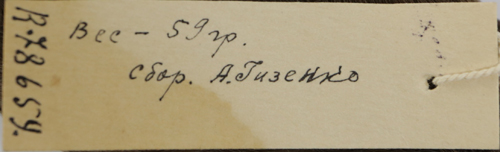 Вес – 59 гр.
сбор. А. Гизенко
R-78659.